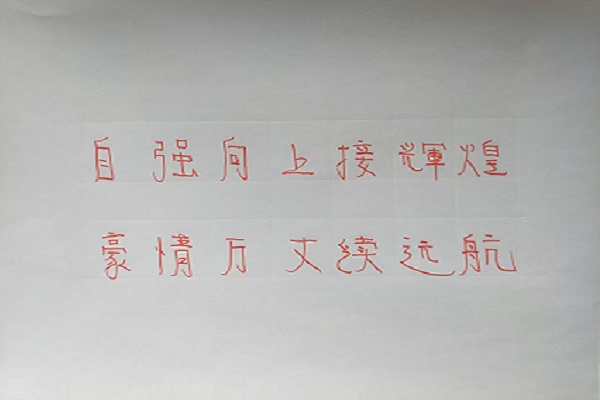 自强向上接輝煌
豪情万丈续远航